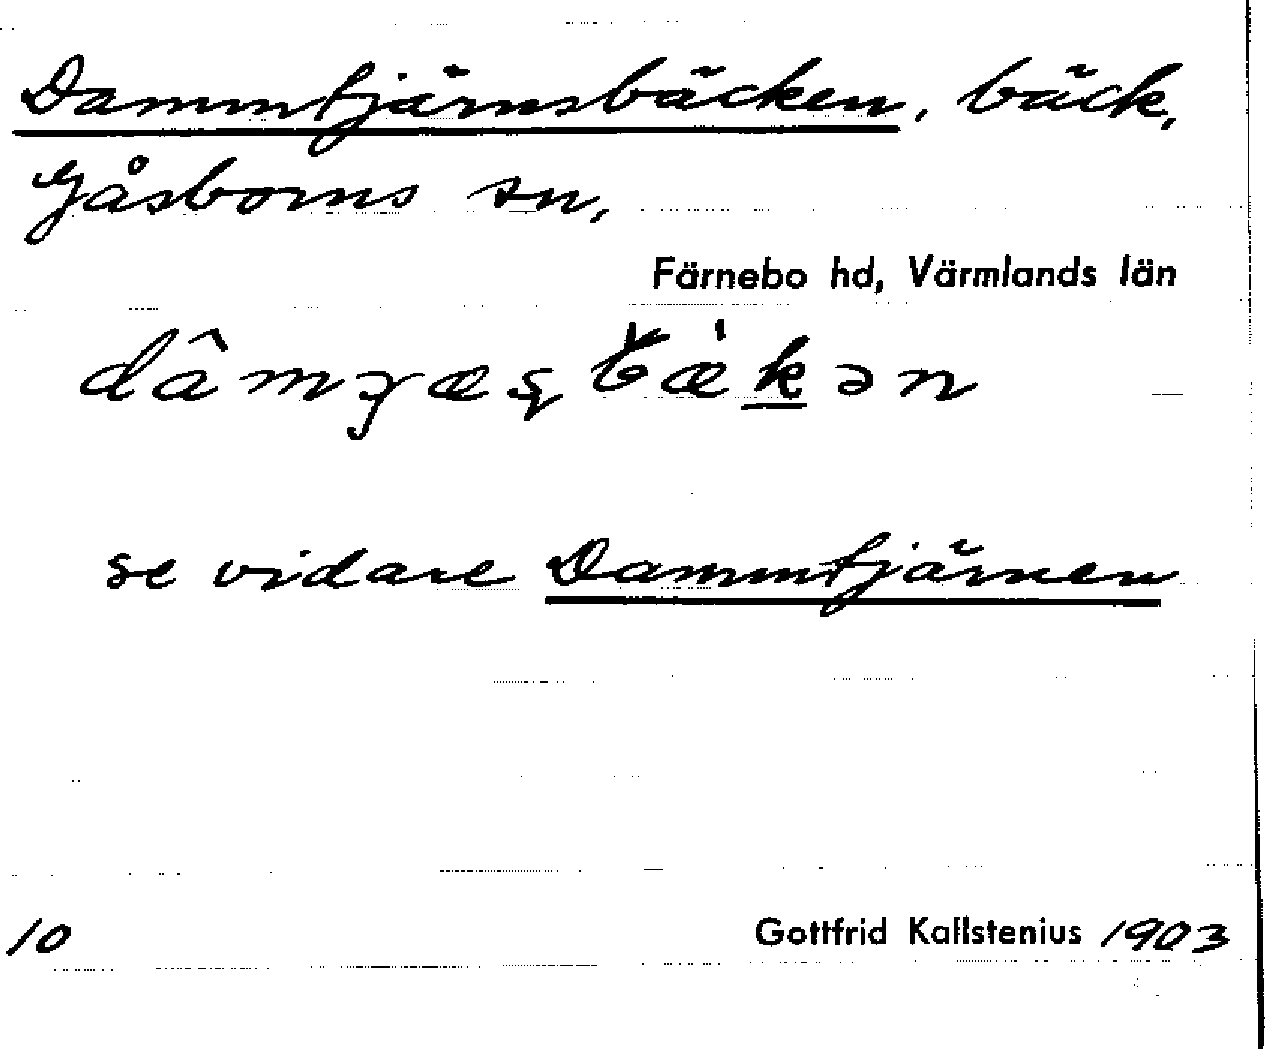 Dammtjärnsbäcken, bäck,
Gåsborns sn,
Färnebo hd, Värmlands län
se vidare Dammtjärnen
10
Gottfrid Kallstenius 1903